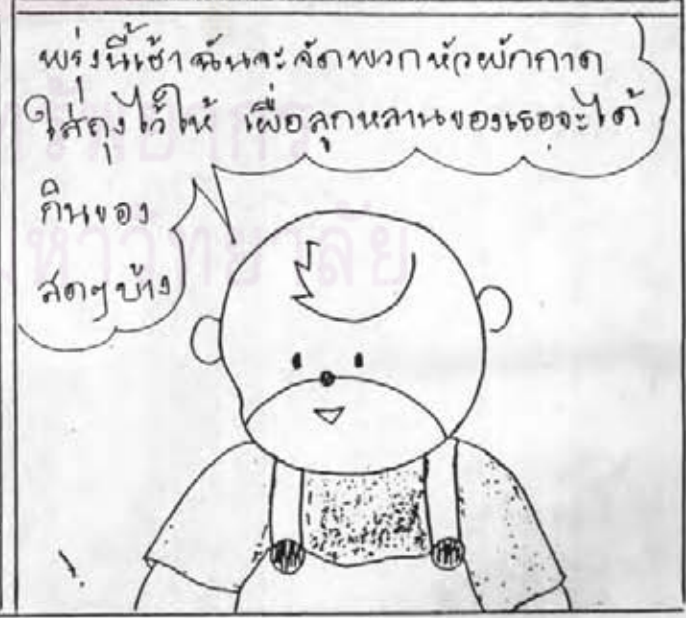 พรุ่งนี้เช้าฉันจะจัดพวกหัวผักกาด
ใส่ถุงไว้ให้ เผื่อลูกหลานของเธอจะได้
กินของ
สดๆบ้าง